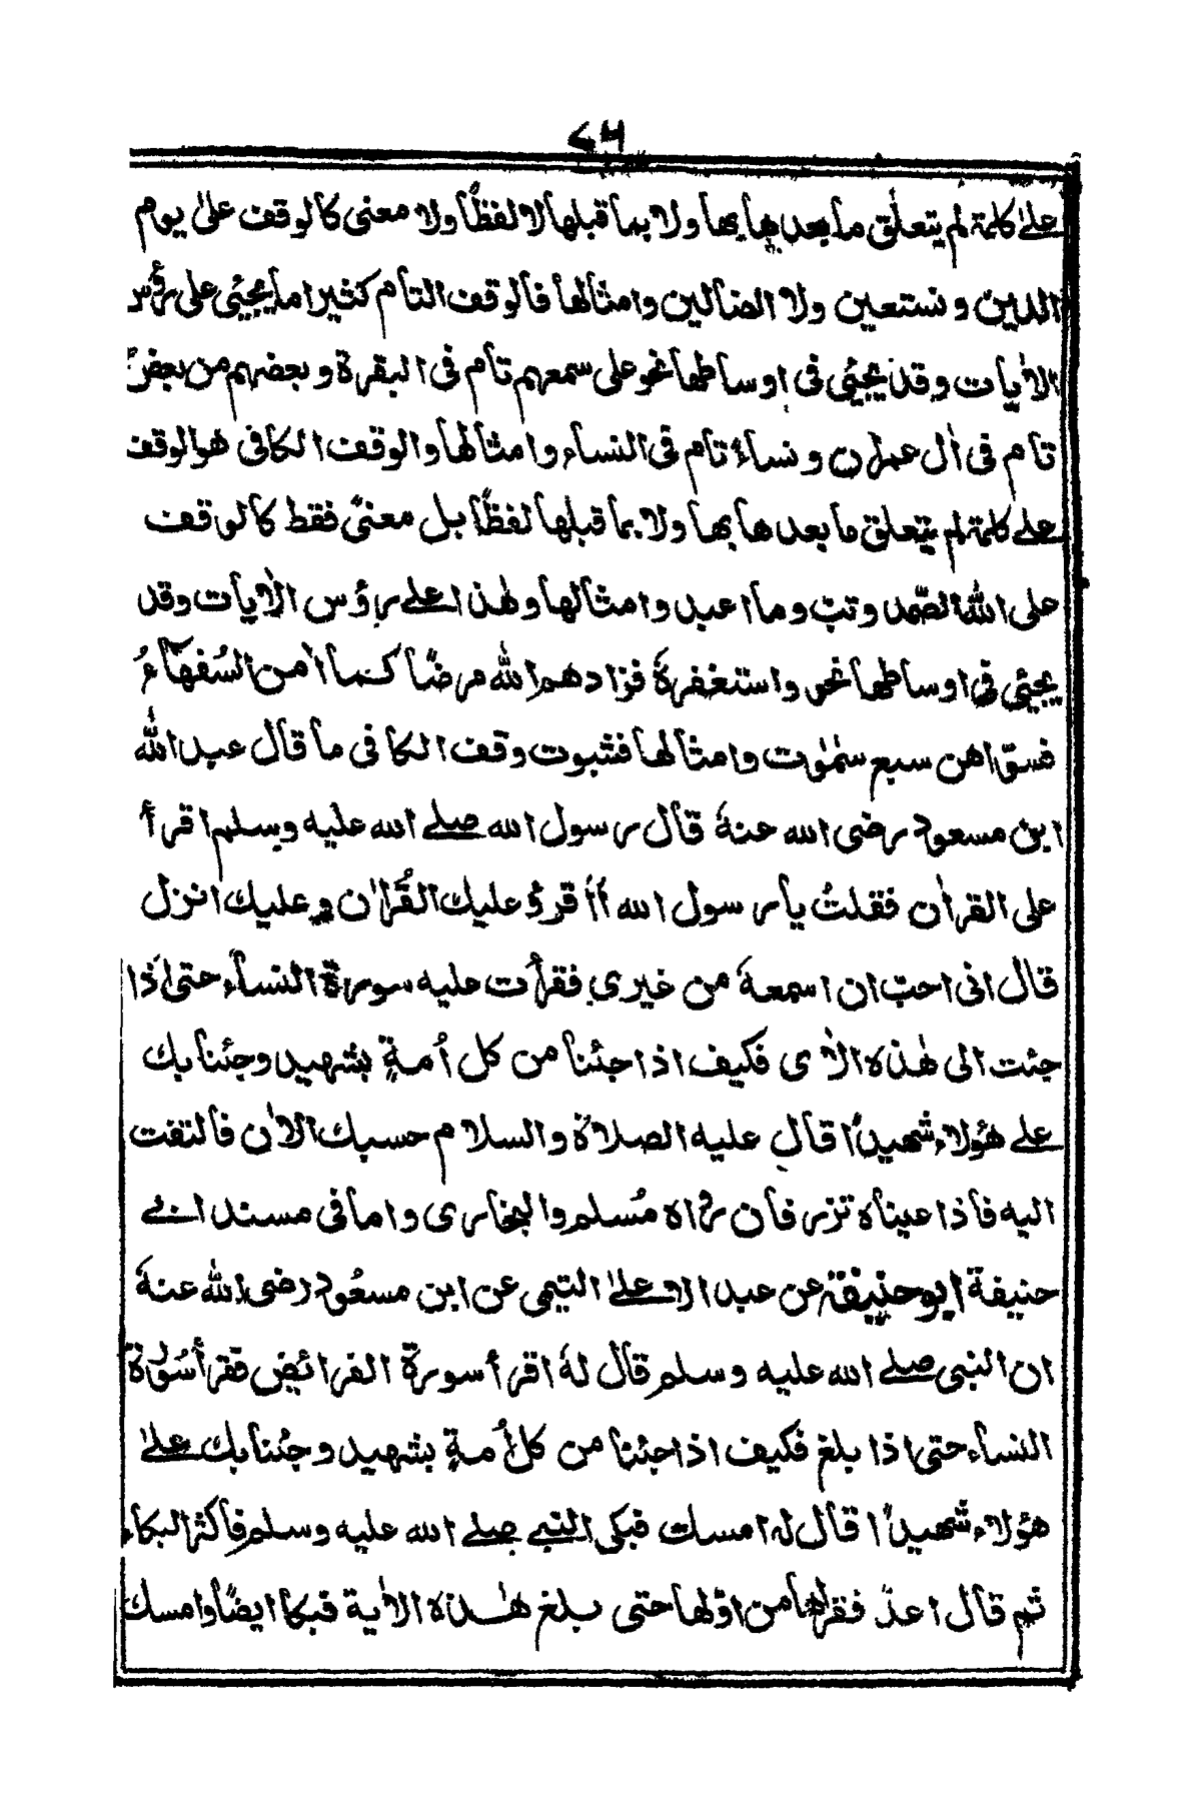 ٧٥
علىٰ كلمة لم يتعلق ما بعدها بها ولا بما قبلها لا لفظًا ولا معنى كالوقف علىٰ يوم
الدين ونستعين ولا الضالين وامثالها فالوقف التام كثيرا ما يجيئ على رؤس
الاٰيات وقد يجيئ فى اوساطها نحو على سمعهم تام فى البقرة وبعضهم من بعض
تام فى اٰل عمران ونساءً تام فى النساء وامثالها والوقف الكافى هو الوقف
على كلمة لم يتعلق ما بعدها بها ولا بما قبلها لفظًا بل معنىً فقط كالوقف
على الله الصّمد وتبّ وما اعبد وامثالها ولهذا على رؤس الاٰيات وقد
يجيئ فى اوساطها نحو واستغفرهٗ فزادهم الله مرضًا كما اٰمن السُفهآءُ
فسوّاهن سبع سمٰوٰت وامثالها فثبوت وقف الكافى ما قال عبد الله
ابن مسعود رضى الله عنهٗ قال رسول الله صلے الله عليه وسلم اقرأ
على القراٰن فقلتُ يا رسول الله أأقرؤ عليك القُراٰن وعليك انزل
قال انى احبّ ان اسمعهٗ من غيرى فقرأت عليه سورة النساء حتى اذا
جئت الى هٰذه الاٰى فكيف اذا جئنا من كل اُمةٍ بشهيد وجئنا بك
علے هؤلاء شهيدًا قال عليه الصلاة والسلام حسبك الاٰن فالتفت
اليه فاذا عيناه تزر فان رواه مُسلم والبخارى واما فى مسند ابے
حنيفة ابو حنيفة عن عبد الاعلىٰ التيمى عن ابن مسعُود رضى الله عنهٗ
ان النبى صلے الله عليه وسلم قال لهٗ اقرأ سورة الفرائض فقرأ سُورة
النساء حتى اذا بلغ فكيف اذا جئنا من كل اُمةٍ بشهيد وجئنا بك علىٰ
هؤلاء شهيدًا قال له امسك فبكى النبے صلے الله عليه وسلم فاكثر البكاء
ثم قال اعد فقراها من اوّلها حتى بلغ هٰذه الاٰية فبكا ايضًا وامسك